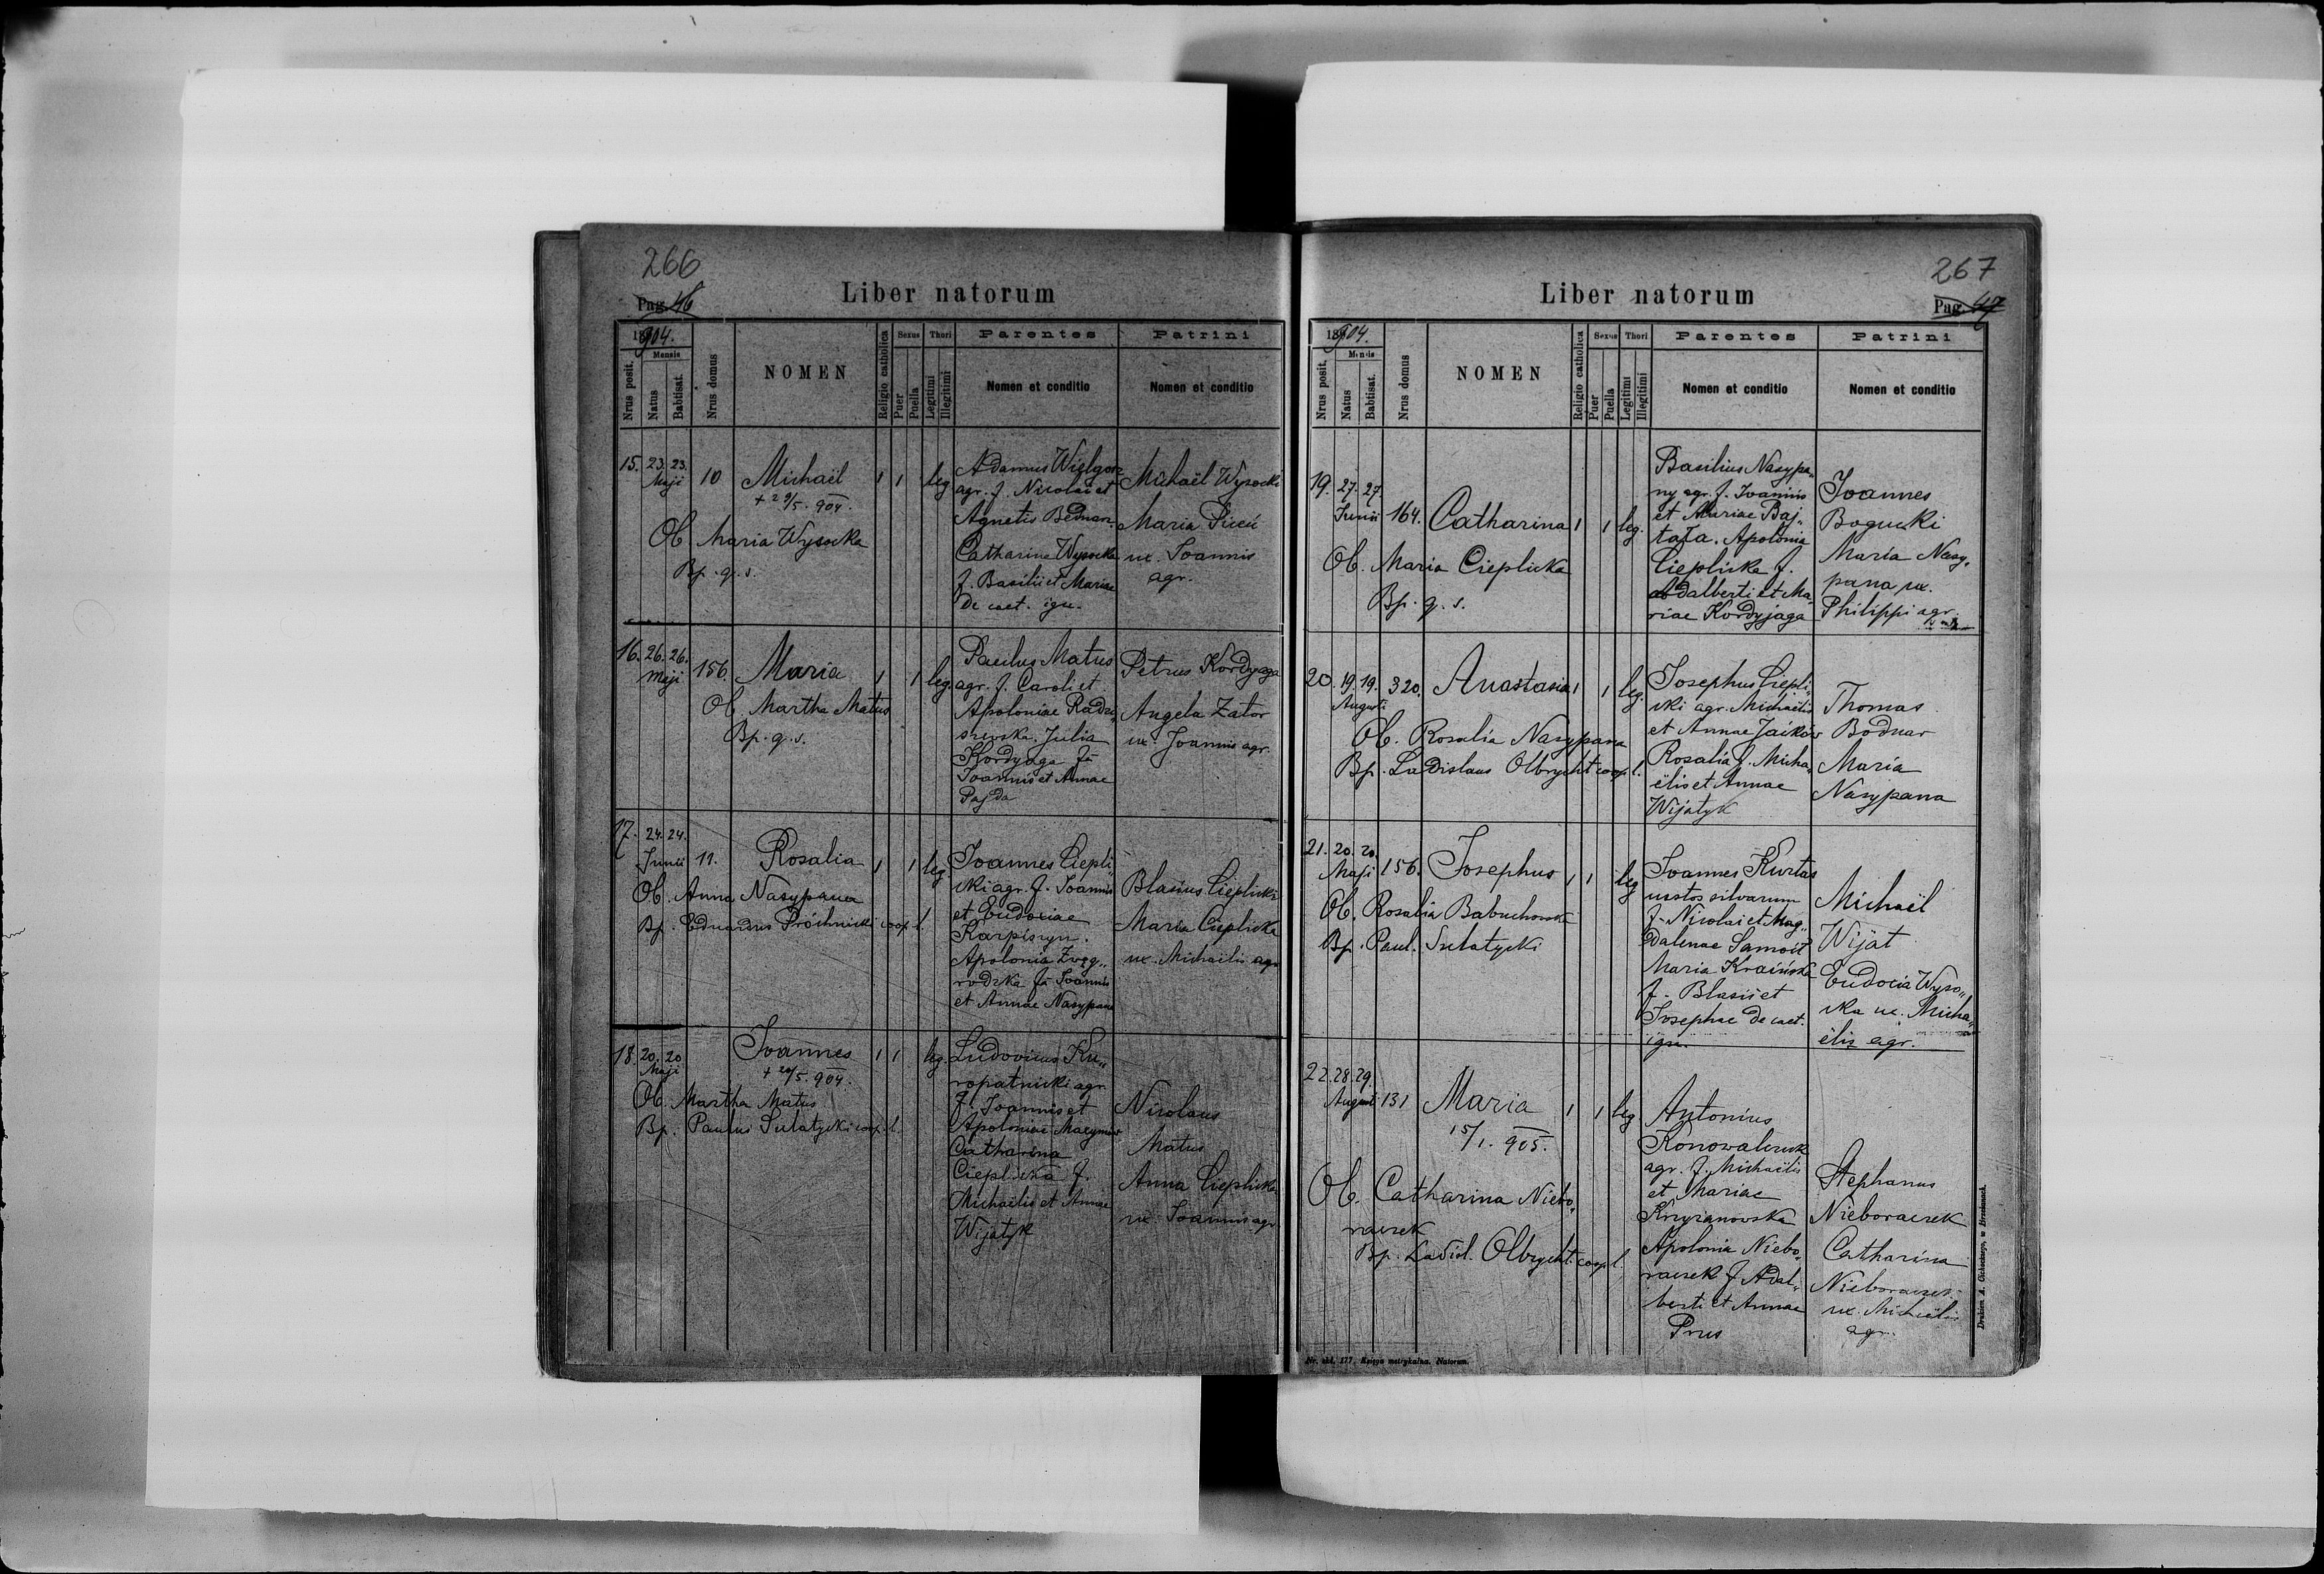 266
Pag. 46
Liber natorum
1904.
Mensis
Nrus posit.
Natus
Babtisat.
Nrus domus
NOMEN
Religio catholica
Sexus
Puer
Puella
Thori
Legitimi
Illegitimi
Parentes
Nomen et conditio
Patrini
Nomen et conditio
15. 23. 23. Maji 10 Michaël 1 1 leg
+ 29/5. 904.
Ob Maria Wysocka
Bp. q. s.
Adamus Wielgosz
agr. f. Nicolai et
Agnetis Bednarz.
Catharina Wysocka
f. Basilii et Mariae
de caet. ign.
Michaël Wysocki
Maria
ux. Joannis
agr.
16. 26. 26. Maji 156. Maria 1 1 leg.
Ob. Martha Matus
Bp. q. s.
Paulus Matus
agr. f. Caroli et
Apoloniae Radzi„
szewska. Julia
Kordyjaga fa
Joannis et Annae
Pajda
Petrus Kordyjaga
Angela Zator
ux. Joannis agr.
17. 24. 24. Junii 11. Rosalia 1 1 leg
Ob. Anna Nasypana
Bp. Eduardus Próchnicki coop. l.
Joannes Ciepli„
cki agr. f. Joannis
et Eudociae
Karpiszyn.
Apolonia Zwog„
rodzka fa Joannis
et Annae Nasypana
Blasius Cieplicki
Maria Cieplicka
ux. Michaelis agr.
18. 20. 20 Maji Joannes 1 1 leg.
+ 20/5. 904.
Ob. Martha Matus
Bp. Paulus Sulatycki coop. l.
Ludovicus Ku„
ropatnicki agr.
f. Joannis et
Apoloniae
Catharina
Cieplicka f.
Michaelis et Annae
Wijatyk
Nicolaus
Matus
Anna Cieplicka
ux. Joannis agr.
267
Pag. 47
Liber natorum
1904.
Mensis
Nrus posit.
Natus
Babtisat.
Nrus domus
NOMEN
Religio catholica
Sexus
Puer
Puella
Thori
Legitimi
Illegitimi
Parentes
Nomen et conditio
Patrini
Nomen et conditio
19. 27. 27. Junii 164. Catharina 1 1 leg.
Ob. Maria Cieplicka
Bp. q. s.
Basilius Nasypa„
ny agr. f. Joannis
et Mariae Baj„
tała. Apolonia
Cieplicka f.
Adalberti et Ma„
riae Kordyjaga
Joannes
Bogucki
Maria Nasy„
pana ux.
Philippi agr.
20. 19. 19. Augusti 320. Anastasia 1 1 leg.
Ob. Rosalia Nasypana
Bp. Ladislaus Olbrycht coop. l.
Josephus Ciepli„
cki agr. Michaëlis
et Annae Jaików
Rosalia f. Micha„
ëlis et Annae
Wijatyk
Thomas
Bodnar
Maria
Nasypana
21. 20. 20. Maji 156. Josephus 1 1 leg
Ob. Rosalia Babuchowska
Bp. Paul. Sulatycki
Joannes Kurtas
custos silvarum
f. Nicolai et Mag„
dalenae Samoit
Maria Kraińska
f. Blasii et
Josephae de caet.
ign.
Michaël
Wijat
Eudocia Wyso„
cka ux. Micha„
ëlis agr.
22. 28. 29. Augusti 131 Maria 1 1 leg.
15/1. 905.
Ob. Catharina Niebo„
raczek
Bp. Ladisl. Olbrycht coop. l.
Antonius
Konowalczuk
agr. f. Michaëlis
et Mariae
Krzyżanowska
Apolonia Niebo„
raczek f. Adal„
berti et Annae
Prus
Stephanus
Nieboraczek
Catharina
Nieboraczek
ux. Michaëlis
agr.
Nr. skł. 177. Księga metrykalna. Natorum.